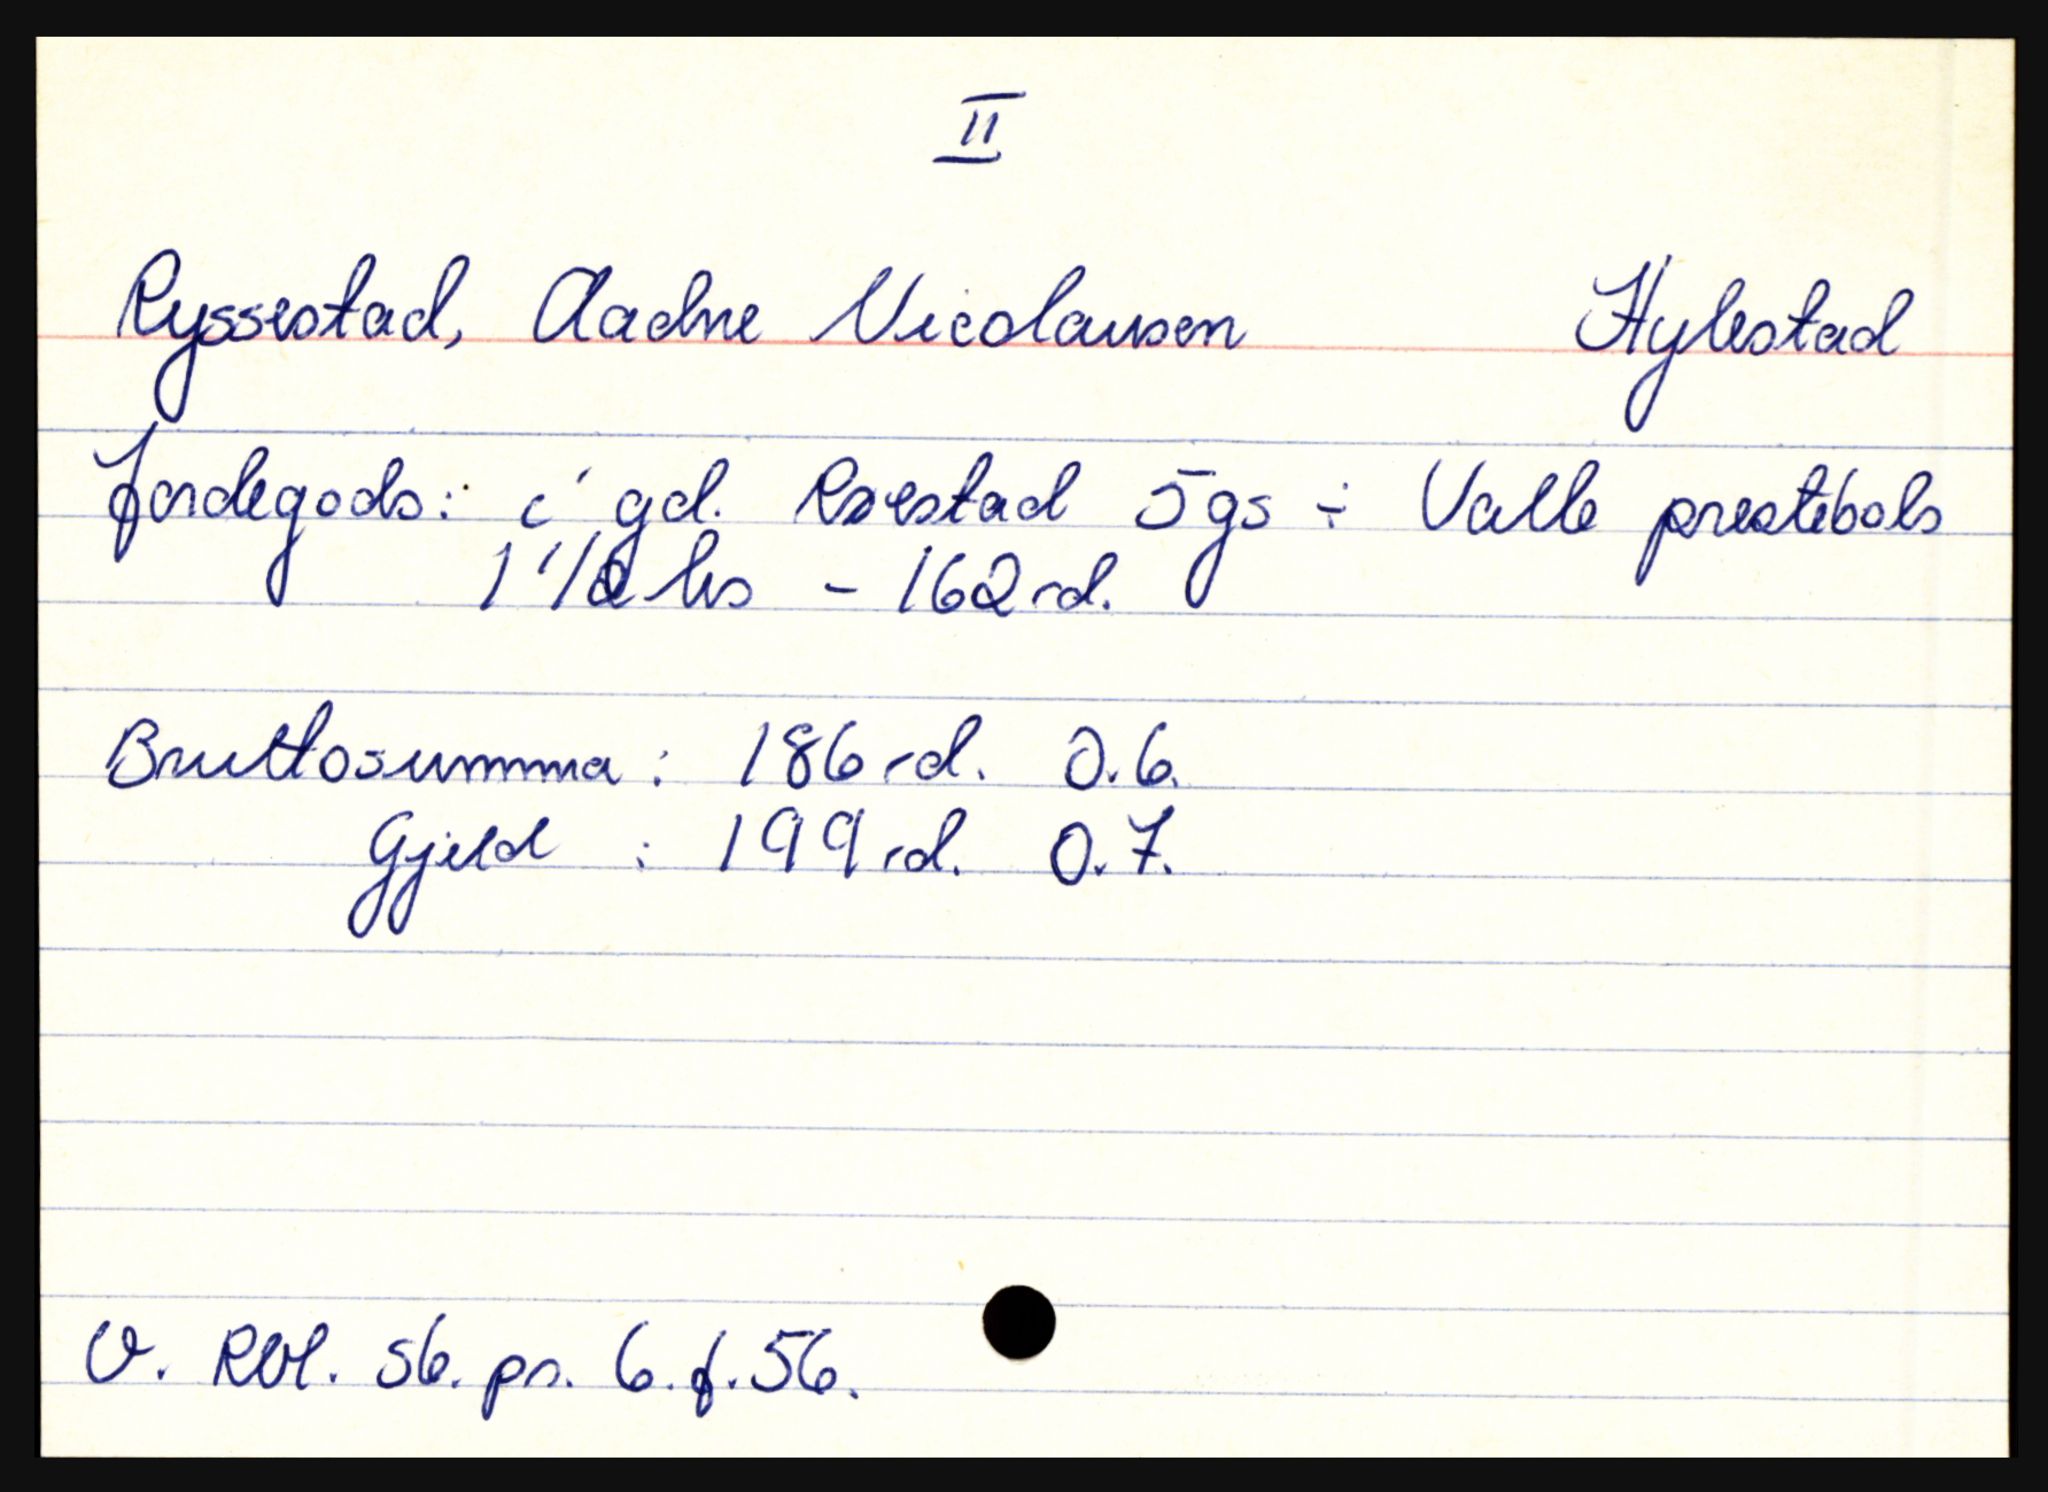 II
Ryssestad, Aadne Nicolausen Hylestad
Jordegods: i gd. Rsestad 5gs ÷ Valle prestebols
1 1/2 hs - 162 rd.
Bruttosumma: 186 rd. 0.6.
Gjeld : 199 rd. 0.7.
V. RVl. Sk. pr. 6. f. 56.